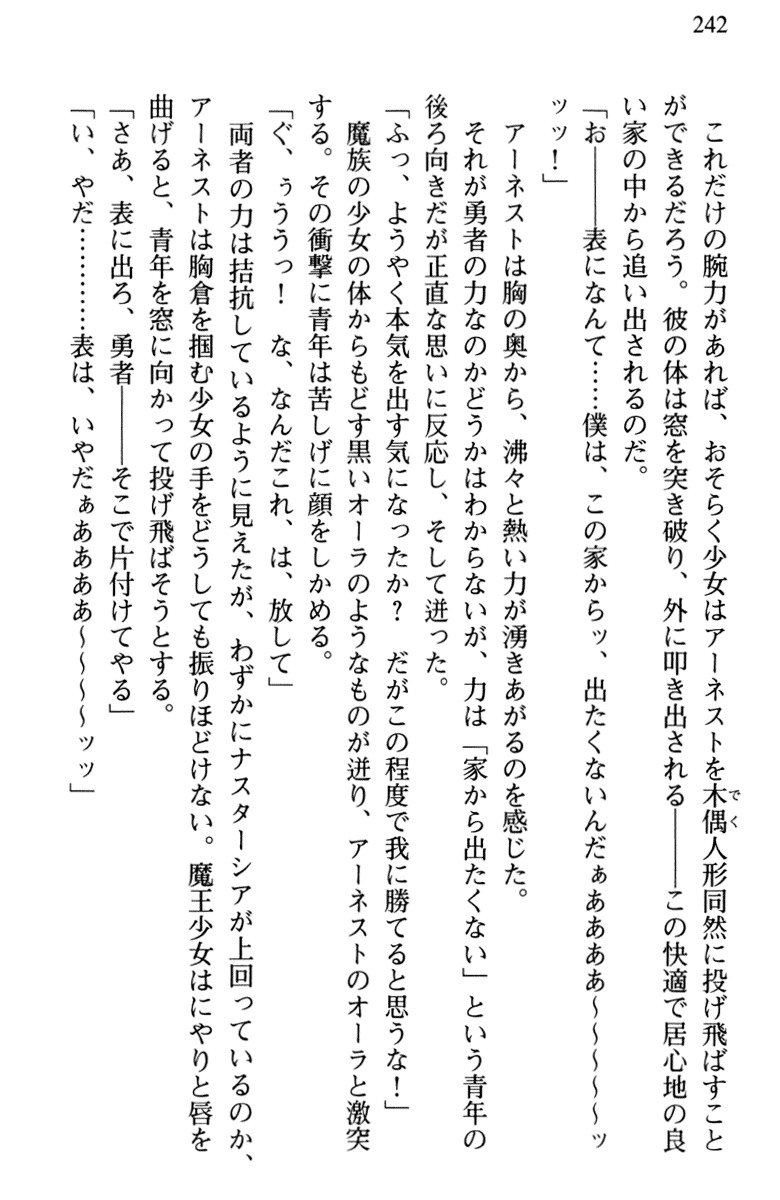 242
これだけの腕力があれば、おそらく少女はアーネストを木偶人形同然に投げ飛ばすこと
ができるだろう。彼の体は窓を突き破り、外に叩き出される――この快適で居心地の良
い家の中から追い出されるのだ。
「お――表になんて……僕は、この家からッ、出たくないんだぁああああ～～～～～ッ
ッッ！」
アーネストは胸の奥から、沸々と熱い力が湧きあがるのを感じた。
それが勇者の力なのかどうかはわからないが、力は「家から出たくない」という青年の
後ろ向きだが正直な思いに反応し、そして迸った。
「ふっ、ようやく本気を出す気になったか？　だがこの程度で我に勝てると思うな！」
魔族の少女の体からもどす黒いオーラのようなものが迸り、アーネストのオーラと激突
する。その衝撃に青年は苦しげに顔をしかめる。
「ぐ、ぅううっ！　な、なんだこれ、は、放して」
両者の力は拮抗しているように見えたが、わずかにナスターシアが上回っているのか、
アーネストは胸倉を掴む少女の手をどうしても振りほどけない。魔王少女はにやりと唇を
曲げると、青年を窓に向かって投げ飛ばそうとする。
「さあ、表に出ろ、勇者――そこで片付けてやる」
「い、やだ…………表は、いやだぁああああ～～～～ッッ」